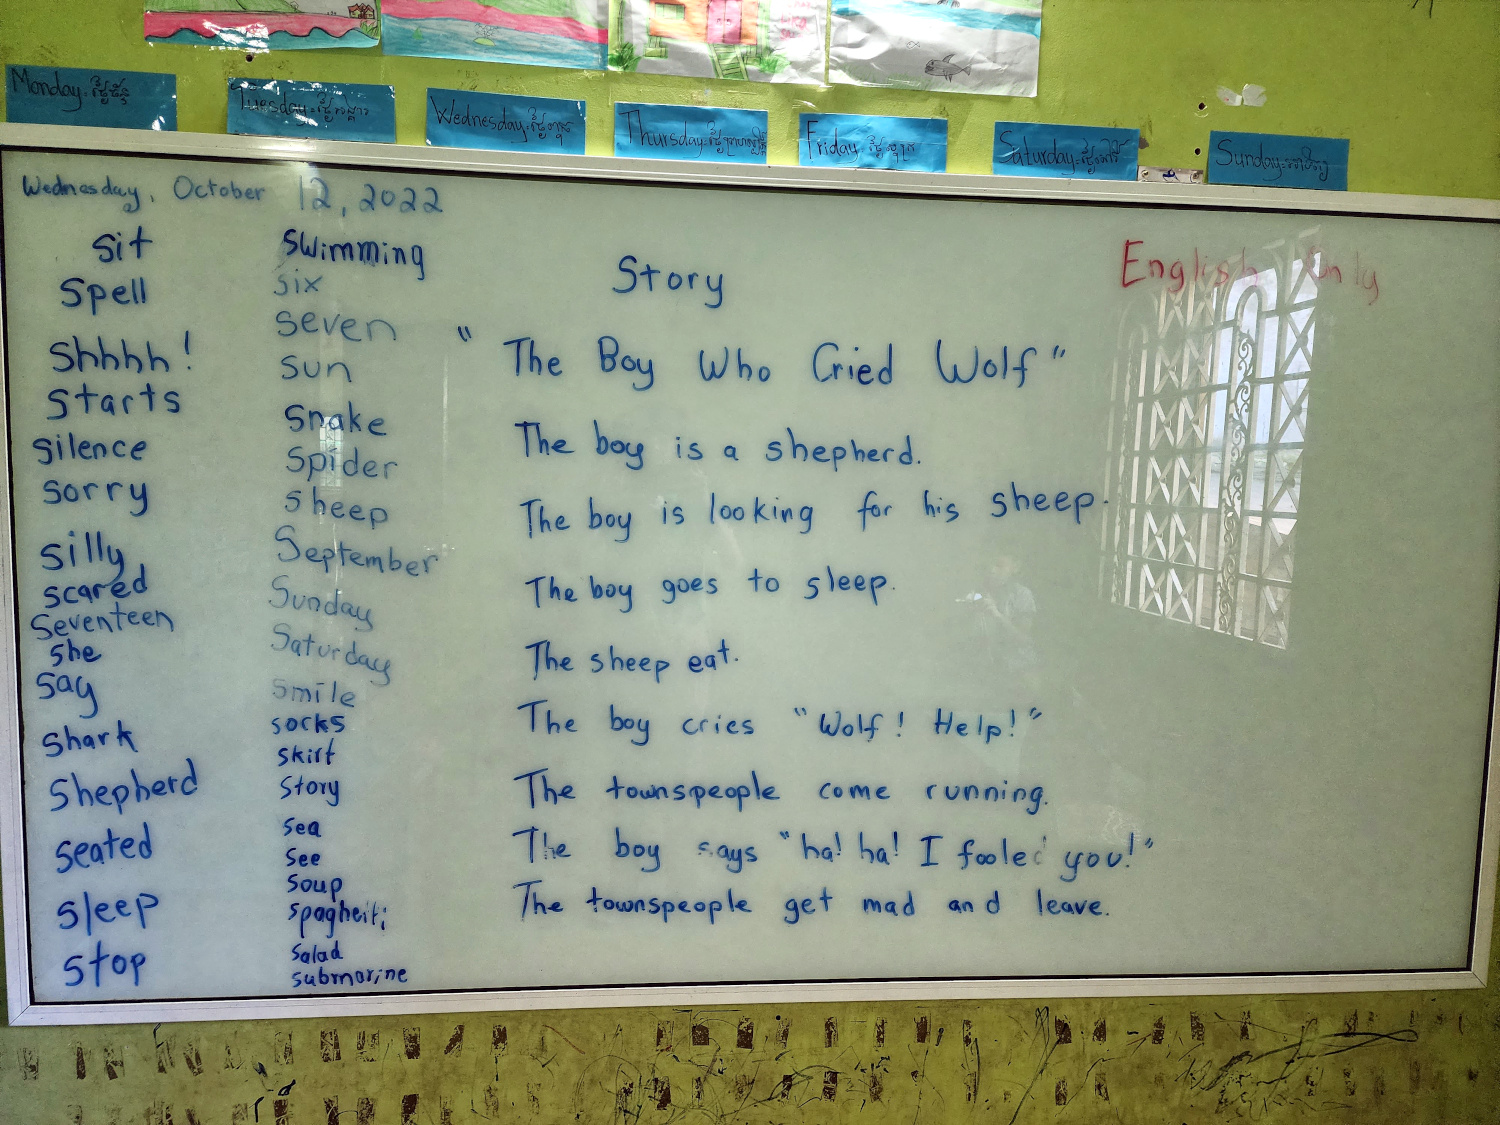 Monday: ថ្ងៃច័ន្ទ
Tuesday: ថ្ងៃអង្គារ
Wednesday: ថ្ងៃពុធ
Thursday: ថ្ងៃព្រហស្បតិ៍
Friday: ថ្ងៃសុក្រ
Saturday: ថ្ងៃសៅរ៍
Sunday:
Wednesday, October 12, 2022
sit
spell
shhhh!
starts
silence
sorry
silly
scared
seventeen
she
say
shark
shepherd
seated
sleep
stop
swimming
six
seven
sun
snake
spider
sheep
September
Sunday
Saturday
smile
socks
skirt
story
sea
see
soup
spagheiti
salad
submarine
Story
"The Boy Who Cried Wolf"
The boy is a shepherd.
The boy is looking for his sheep.
The boy goes to sleep.
The sheep eat.
The boy cries "Wolf! Help!"
The townspeople come running.
The boy says "ha! ha! I fooled you!"
The townspeople get mad and leave.
English Only